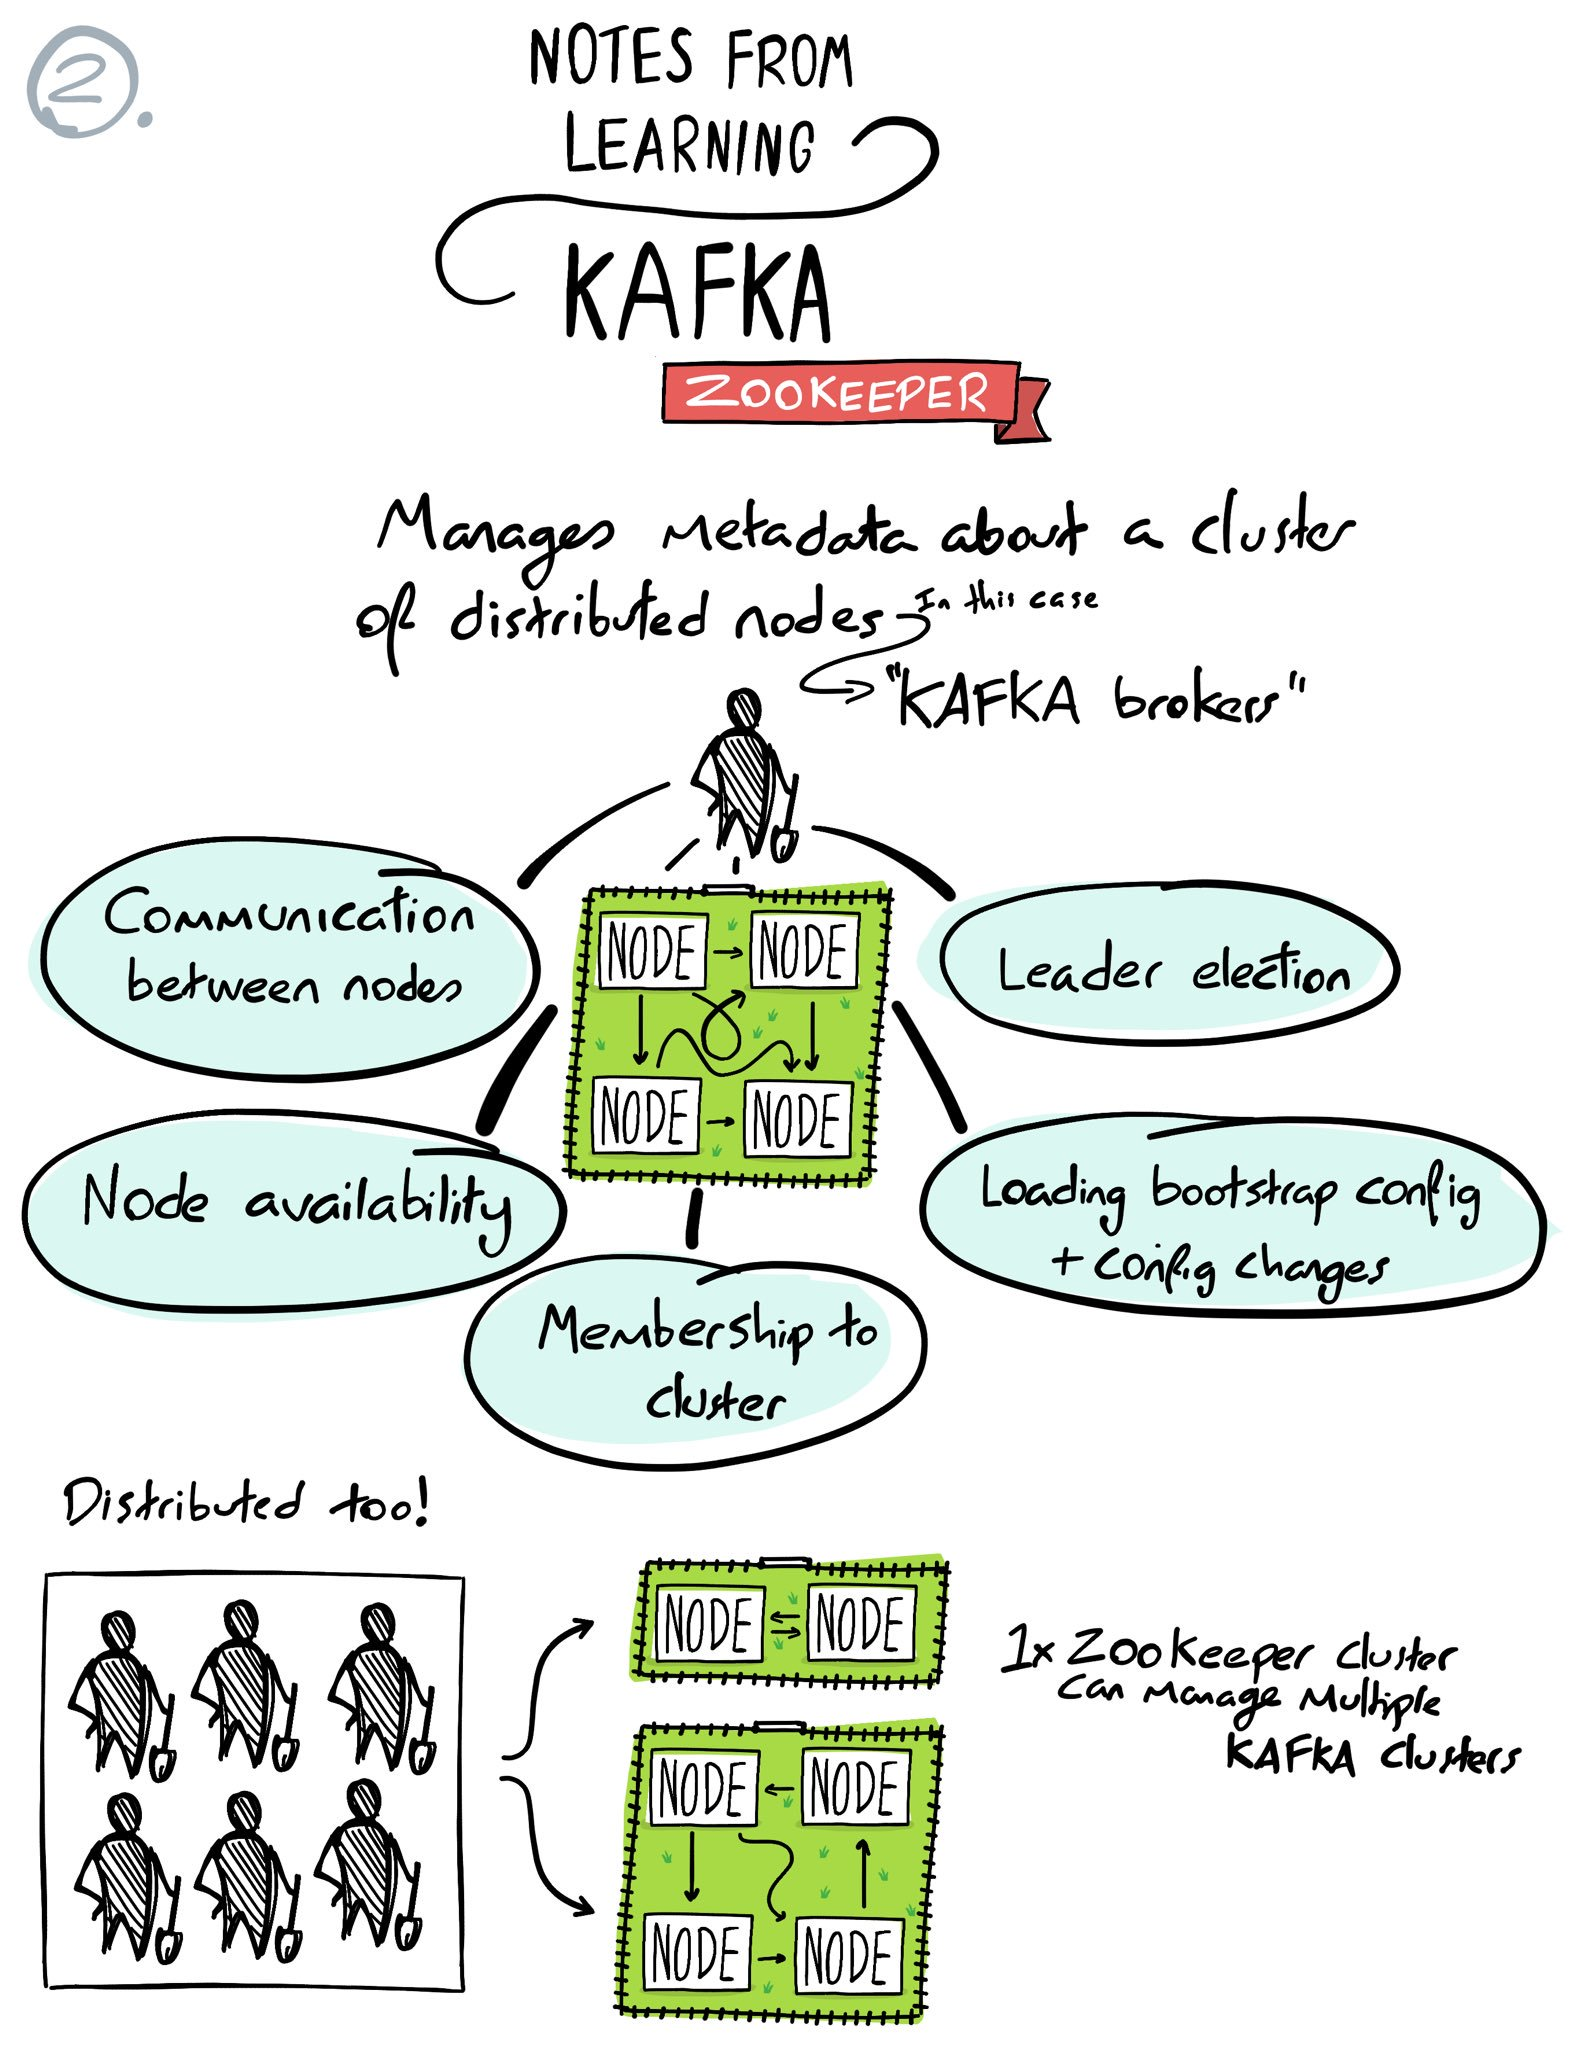 2.
NOTES FROM
LEARNING
KAFKA
ZOOKEEPER
Manages metadata about a cluster
of distributed nodes
In this case
"KAFKA brokers"
Communication
between nodes
Leader election
NODE NODE
NODE NODE
Node availability
Loading bootstrap config
+ config changes
Membership to
cluster
Distributed too!
NODE NODE
1x Zookeeper cluster
can manage multiple
KAFKA clusters
NODE NODE
NODE NODE